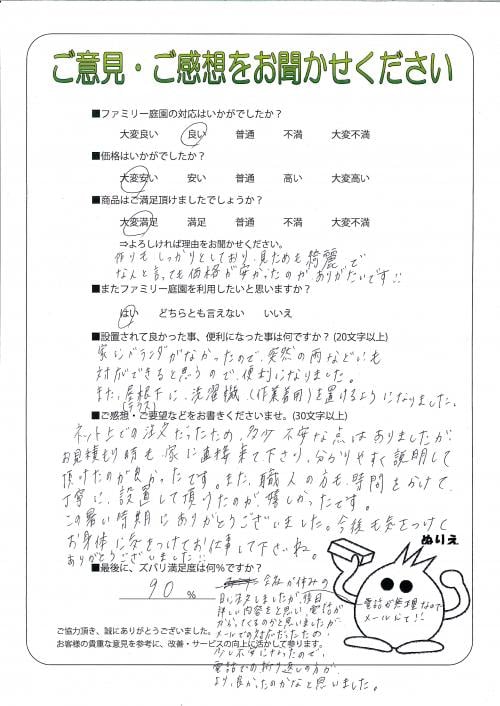 ご意見・ご感想をお聞かせください
■ファミリー庭園の対応はいかがでしたか？
大変良い 良い 普通 不満 大変不満
■価格はいかがでしたか？
大変安い 安い 普通 高い 大変高い
■商品はご満足頂けましたでしょうか？
大変満足 満足 普通 不満 大変不満
⇒よろしければ理由をお聞かせください。
作りもしっかりとしており、見ためも綺麗で
なんと言っても価格が安かったのがありがたいです!!
■またファミリー庭園を利用したいと思いますか？
はい どちらとも言えない いいえ
■設置されて良かった事、便利になった事は何ですか？ (20文字以上)
家にベランダがなかったので、突然の雨などにも
対応ができると思うので、便利になりました。
また、屋根下に、洗濯機(作業着用)を置けるようになりました。
(テラス)
■ご感想・ご要望などをお書きくださいませ。(30文字以上)
ネット上での注文だったため、多少不安な点はありましたが、
お見積もり時も、家に直接来て下さり、分かりやすく説明して
頂けたのが良かったです。また、職人の方も、時間をかけて、
丁寧に、設置して頂けたのが、嬉しかったです。
この暑い時期にありがとうございました。今後も気をつけて
お身体に気をつけてお仕事して下さいね。
ありがとうございました!!
■最後に、ズバリ満足度は何％ですか？
90 %
会社が休みの
日に注文しましたが、後日
詳しい内容をと思い、電話が
かかってくるのかと思いましたが
メールでの対応だったため
少し不安になったので、
電話での折り返しの方が、
より良かったのかなと思いました。
ぬりえ
電話が無理なので
メールかて!!
ご協力頂き、誠にありがとうございました。
お客様の貴重な意見を参考に、改善・サービスの向上に活かして参ります。